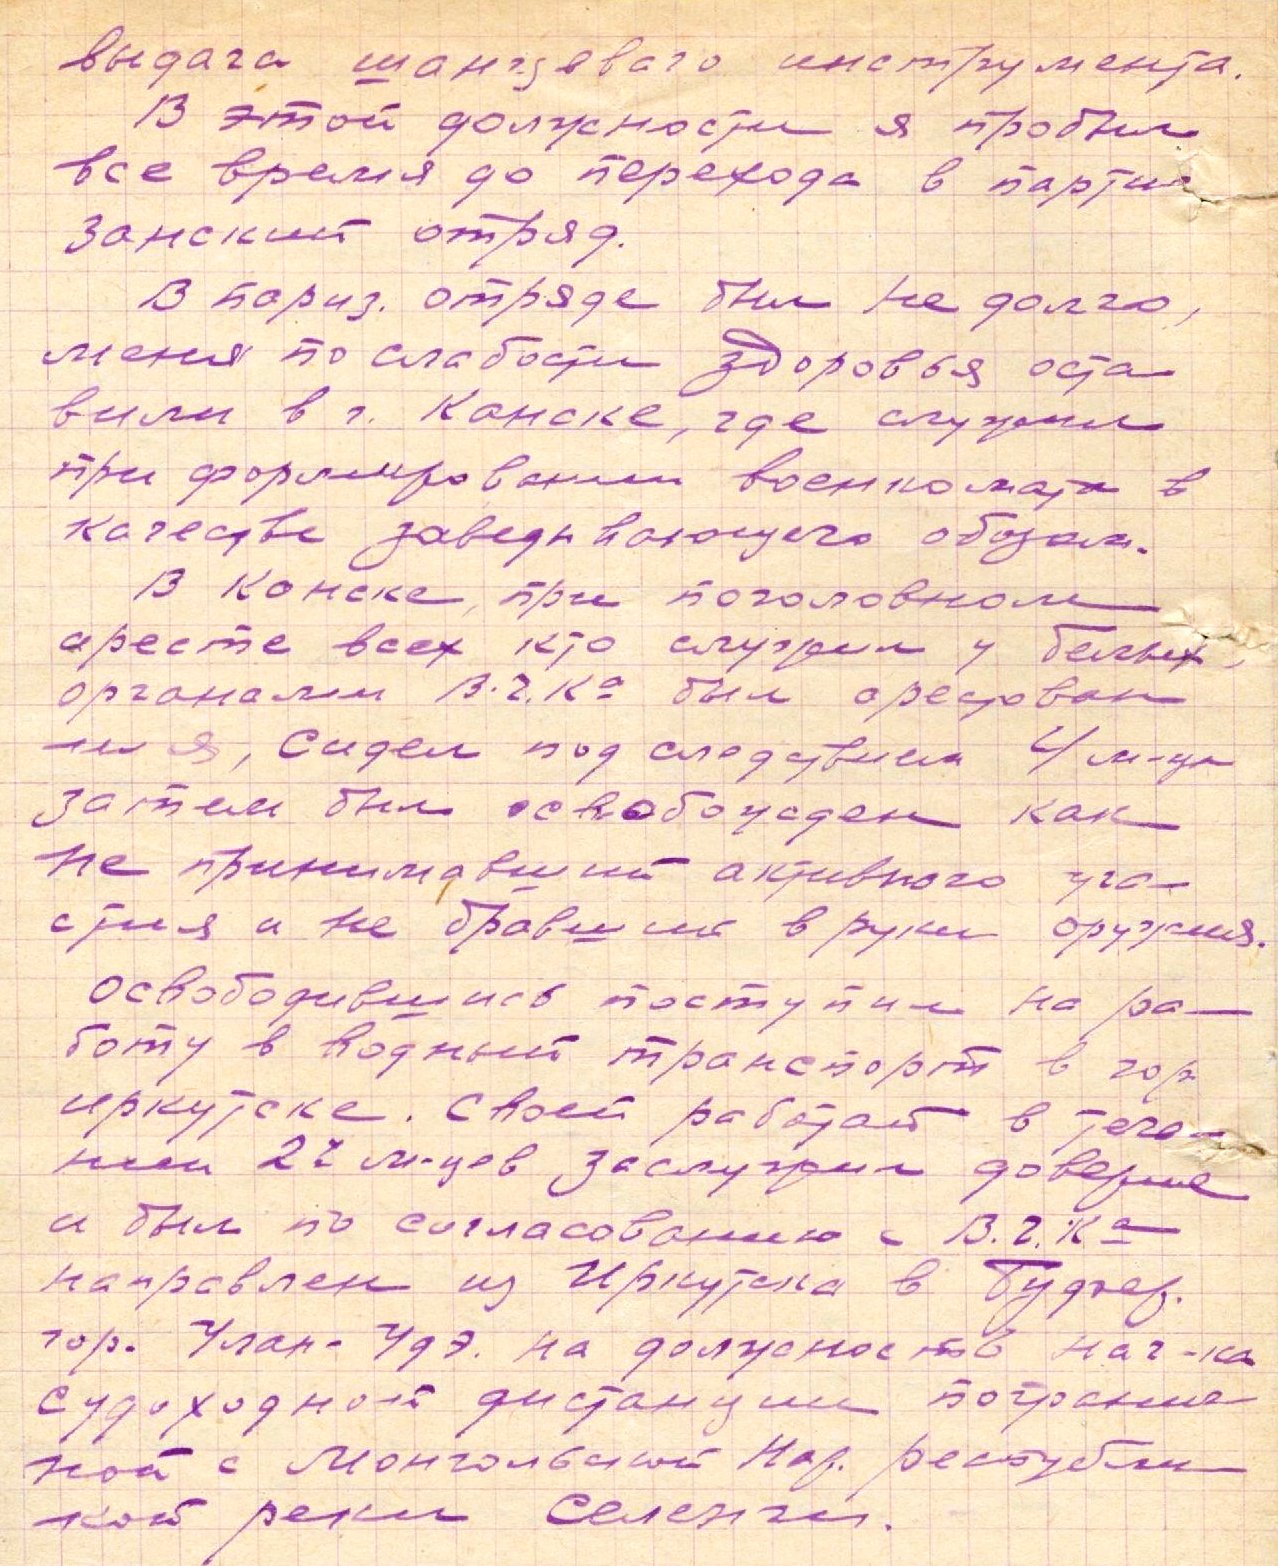 выдача шанцеваго инструмента.
В этой должности я пробыл
все время до перехода в парти
занский отряд.
В париз. отряде был не долго,
меня по слабости здоровья оста
вили в г. Канске, где служил
при формировании военкомата в
качестве заведывающего обозом.
В Канске, при поголовном
аресте всех кто служил у белых,
органами В.Ч.Ка был арестован
и я, сидел под следствием 4 м-ца
затем был освобожден как
не принимавший активного уча-
стия и не бравший в руки оружия.
Освободившись поступил на ра-
боту в водный транспорт в гор.
Иркутске. Своей работай в тече-
нии 22 м-цев заслужил доверие
и был по согласованию с В.Ч.Ка
направлен из Иркутска в
гор. Улан-Удэ. на должность нач-ка
судоходной дистанции погранич
ной с Монгольской Нар. республи
кой реки Селенги.